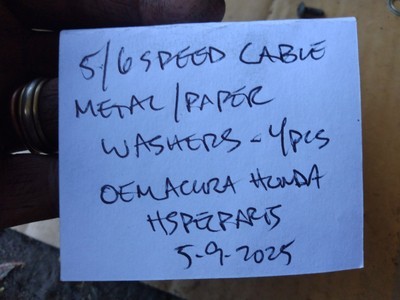 5/6 SPEED CABLE
METAL/PAPER
WASHERS - 4PCS
OEM ACURA HONDA
HSPECPARTS
5-9-2025